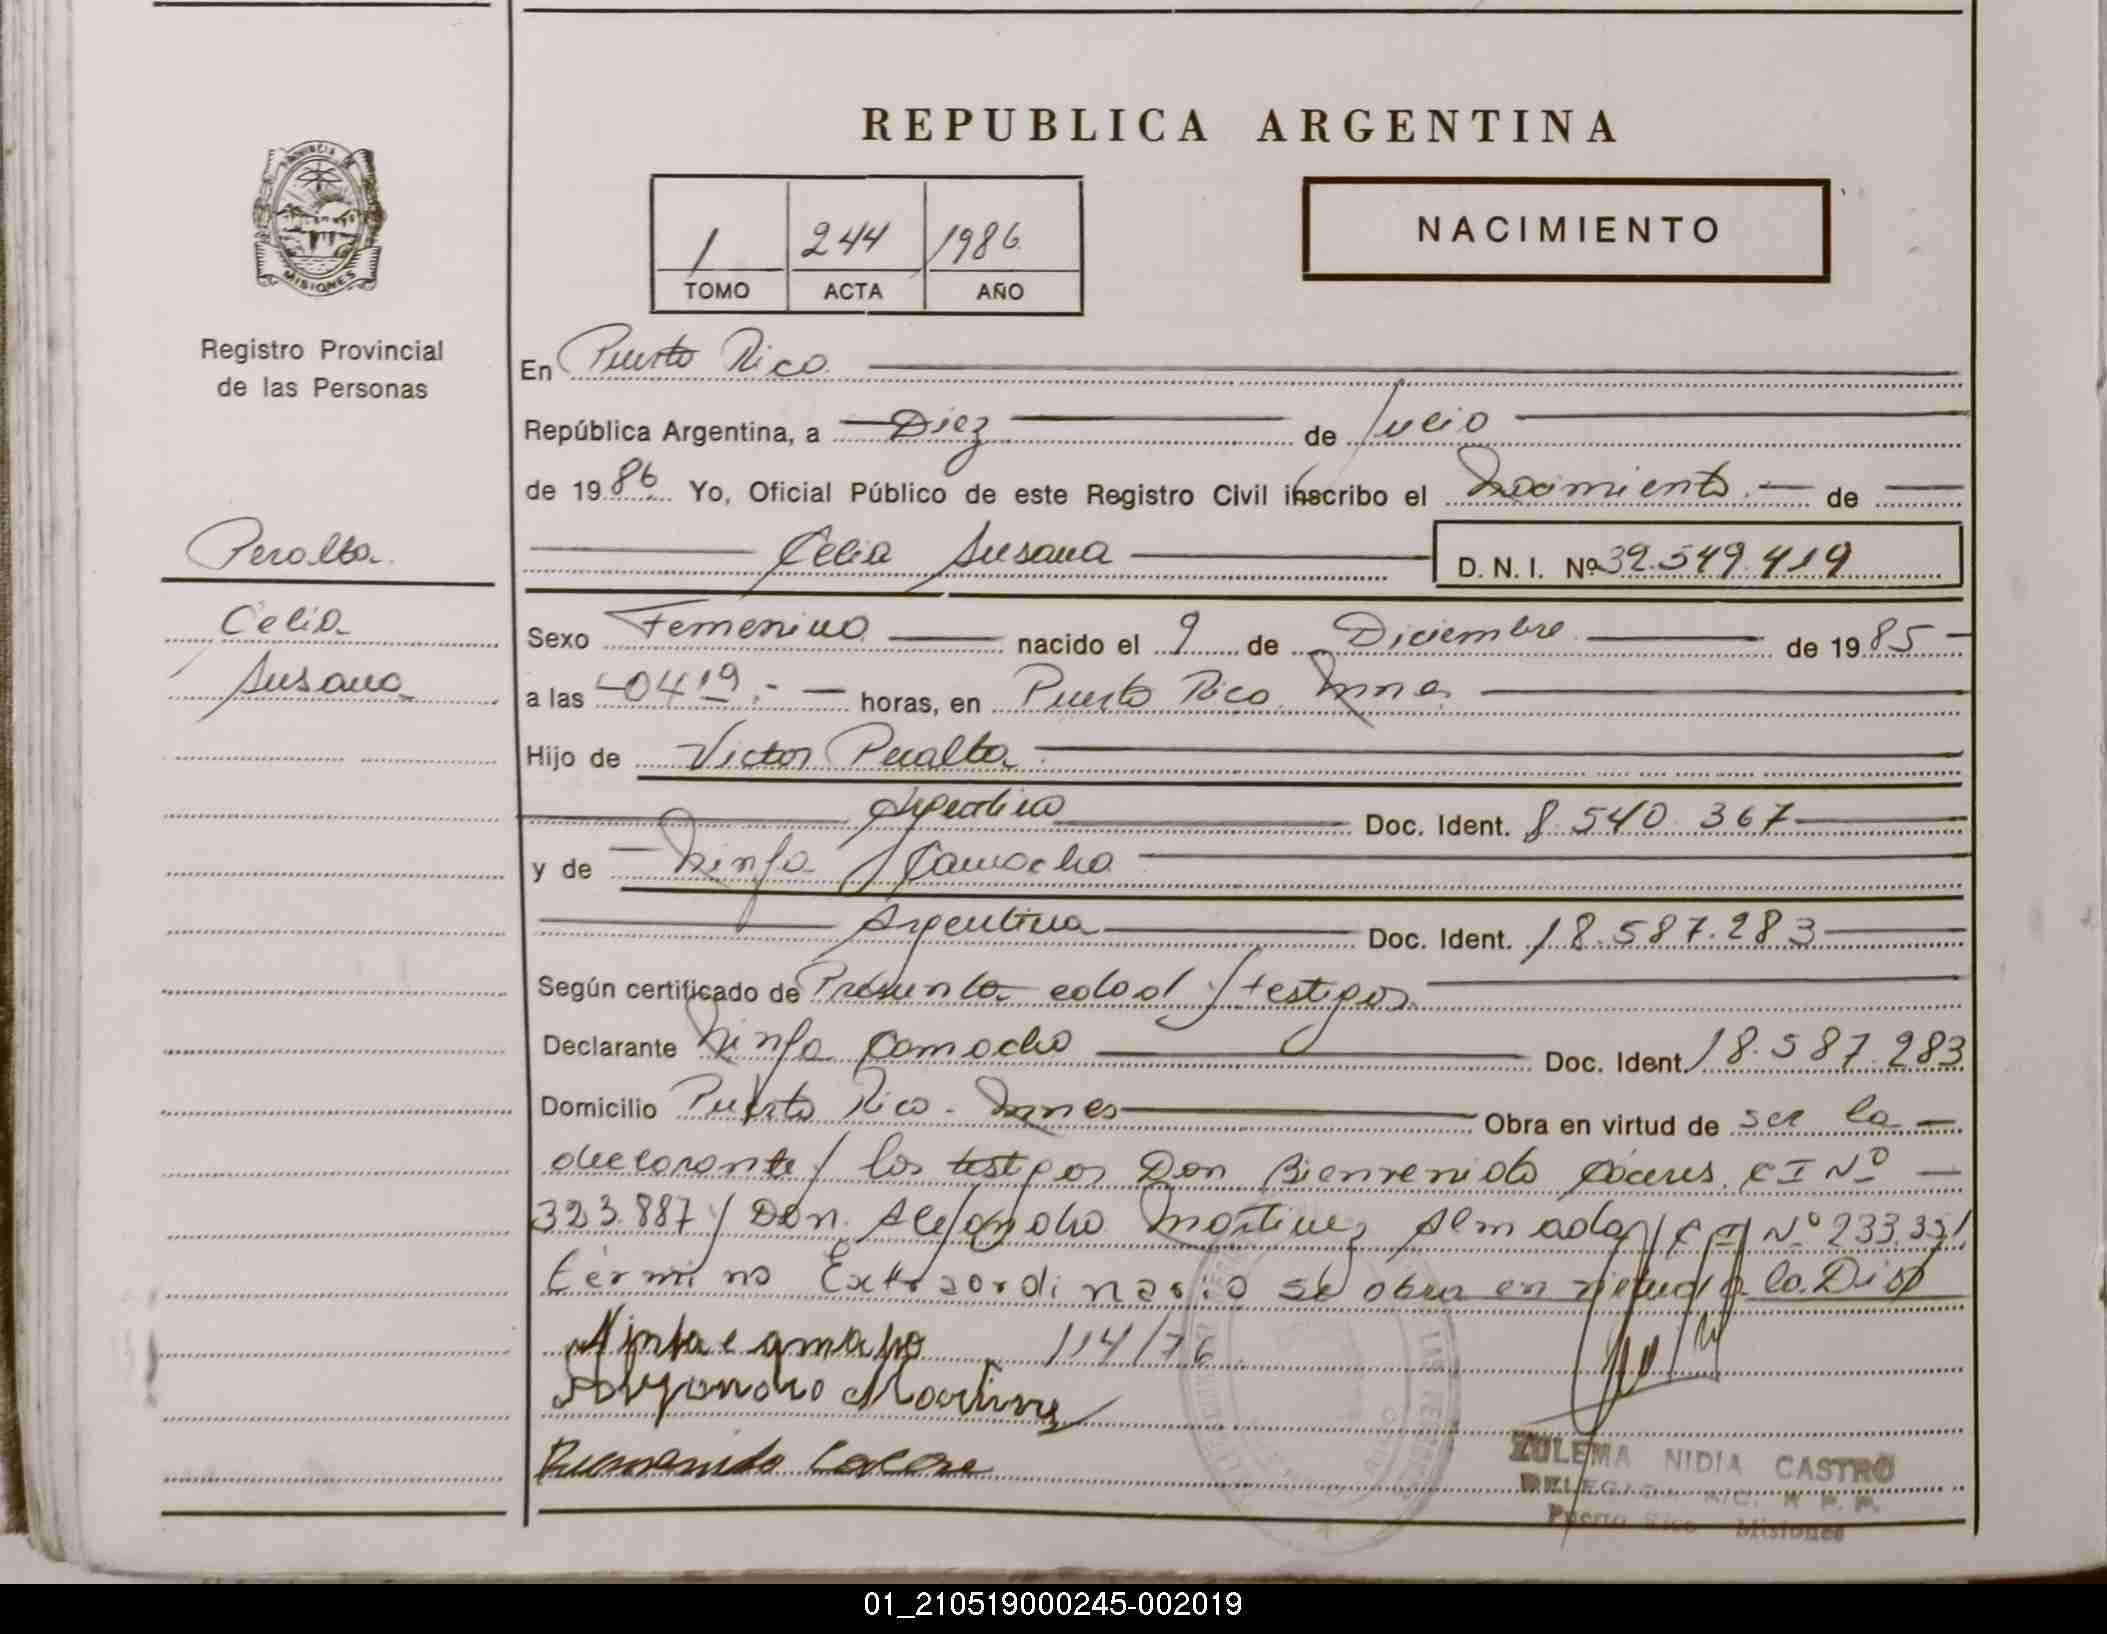 REPUBLICA ARGENTINA
PROVINCIA DE
MISIONES
Registro Provincial
de las Personas
1 244 1986
TOMO ACTA AÑO
NACIMIENTO
En Puerto Rico
República Argentina, a Diez de Julio
de 1986 Yo, Oficial Público de este Registro Civil inscribo el Nacimiento de
Celia Susana D. N. I. Nº 32.549.419
Peralta
Celia
Susana
Sexo Femenino nacido el 9 de Diciembre de 1985
a las 0419 horas, en Puerto Rico Mnes
Hijo de Victor Peralta
Argentino Doc. Ident. 8.540.367
y de Ninfa Camacho
Argentina Doc. Ident. 18.587.283
Según certificado de Presunta edad y testigos
Declarante Ninfa Camacho Doc. Ident. 18.587.283
Domicilio Puerto Rico - Mnes Obra en virtud de ser la
declarante y los testigos Don Bienvenido Cáceres CI Nº
323.887 y Don Alejandro Martinez Almada CI Nº 233.331
término Extraordinario se obra en virtud a la Disp
114/76
Alejandro Martinez
ZULEMA NIDIA CASTRO
Puerto Rico Misiones
01_210519000245-002019